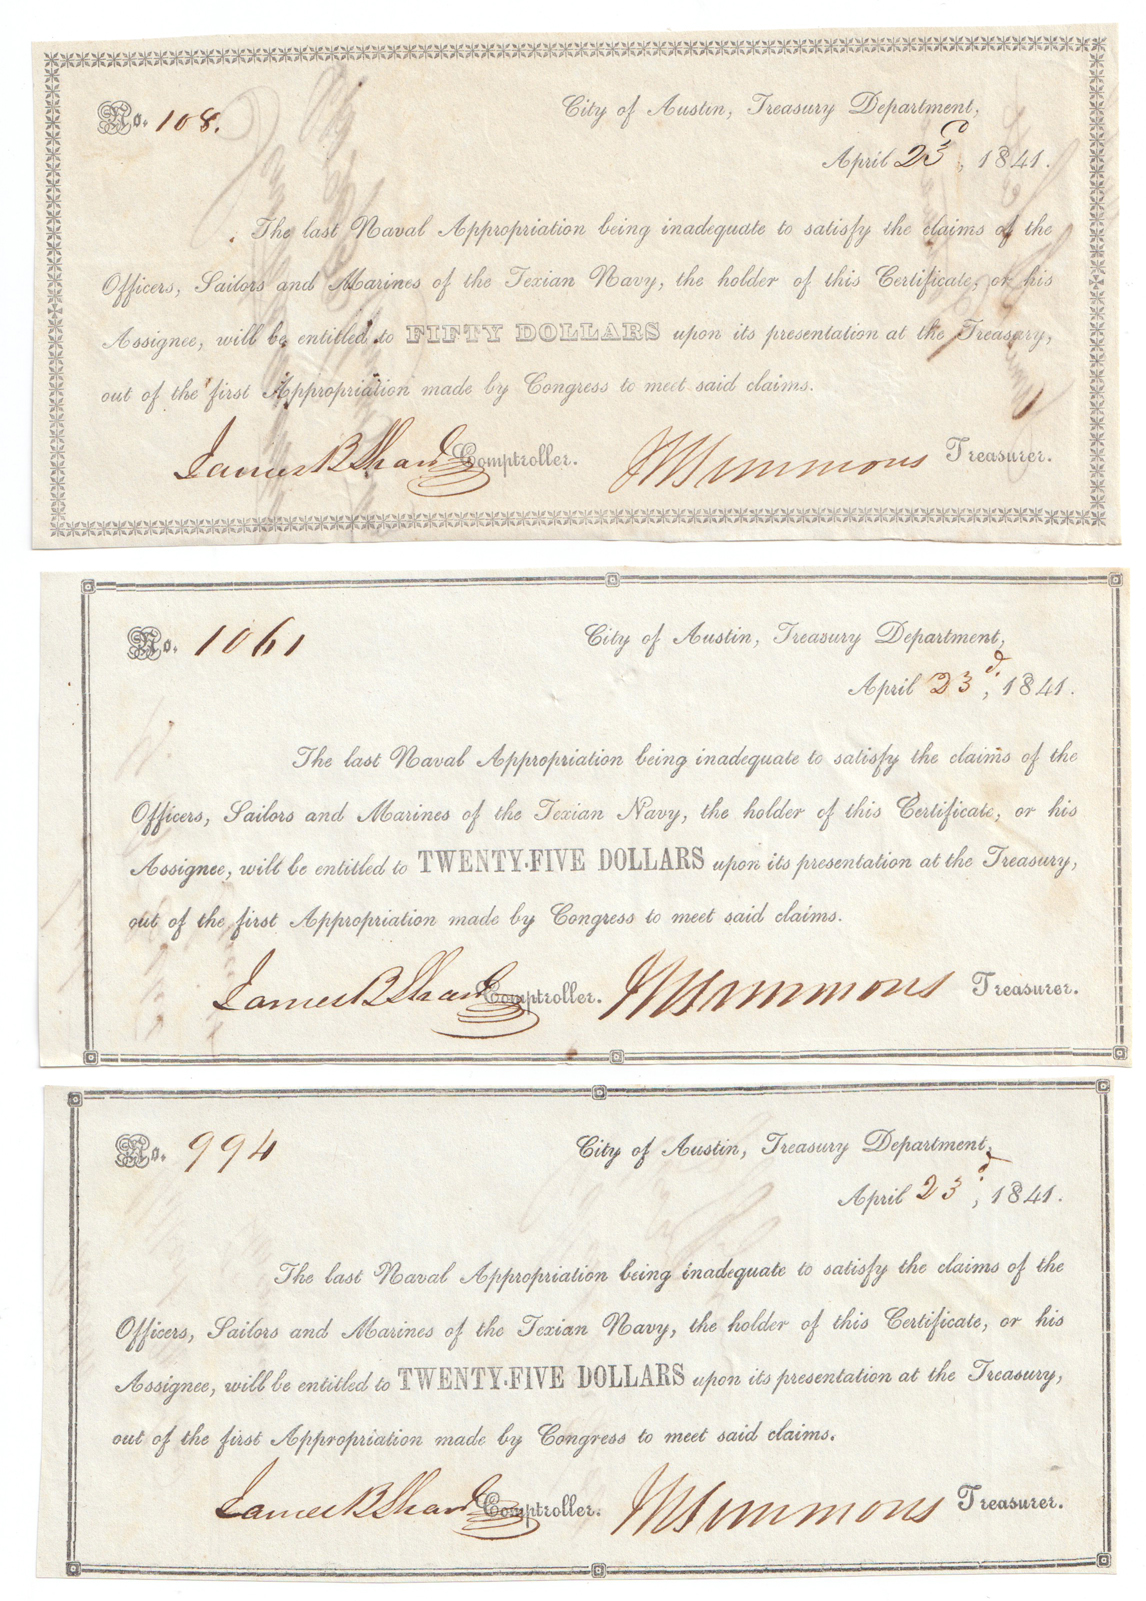 No. 108.
City of Austin, Treasury Department,
April 23d, 1841.
The last Naval Appropriation being inadequate to satisfy the claims of the
Officers, Sailors and Marines of the Texian Navy, the holder of this Certificate, or his
Assignee, will be entitled to FIFTY DOLLARS upon its presentation at the Treasury,
out of the first Appropriation made by Congress to meet said claims.
James B Shaw Comptroller. W Simmons Treasurer.
No. 1061
City of Austin, Treasury Department,
April 23d, 1841.
The last Naval Appropriation being inadequate to satisfy the claims of the
Officers, Sailors and Marines of the Texian Navy, the holder of this Certificate, or his
Assignee, will be entitled to TWENTY-FIVE DOLLARS upon its presentation at the Treasury,
out of the first Appropriation made by Congress to meet said claims.
James B Shaw Comptroller. W Simmons Treasurer.
No. 994
City of Austin, Treasury Department,
April 23d, 1841.
The last Naval Appropriation being inadequate to satisfy the claims of the
Officers, Sailors and Marines of the Texian Navy, the holder of this Certificate, or his
Assignee, will be entitled to TWENTY-FIVE DOLLARS upon its presentation at the Treasury,
out of the first Appropriation made by Congress to meet said claims.
James B Shaw Comptroller. W Simmons Treasurer.